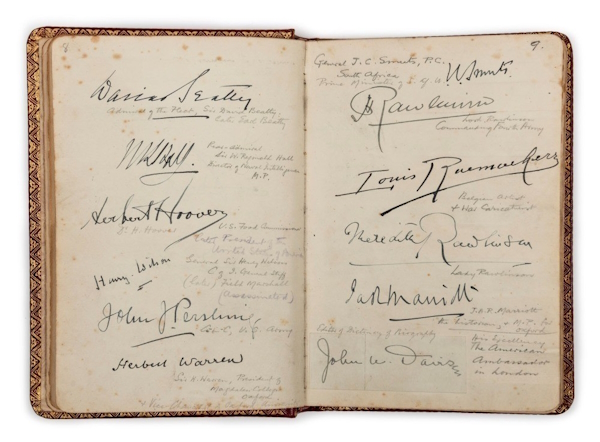 8
David Beatty
Admiral of the Fleet, Sir David Beatty
Later Earl Beatty
Rear Admiral
Sir W. Reginald Hall
Director of Naval Intelligence
M.P.
Herbert Hoover
U.S. Food
President of the
United States of
General Sir Henry Wilson
Henry Wilson
C.I.G. Staff
(later) Field Marshall
(Assassinated)
John J. Pershing
U.S. Army
Herbert Warren
Sir H. Warren, President of
Magdalen College
Oxford
9.
General J. C. Smuts, P.C.
South Africa
Prime Minister of S. Africa
J. C. Smuts
Rawlinson
Lord Rawlinson
Commanding Fourth Army
Louis Raemaekers
Belgian Artist
& War Caricaturist
Meredith Rawlinson
Lady Rawlinson
J.A.R. Marriott
J.A.R. Marriott
the historian, & M.P. for
Oxford
Dictionary of Biography
His Excellency
The American
Ambassador
in London
John W. Davis